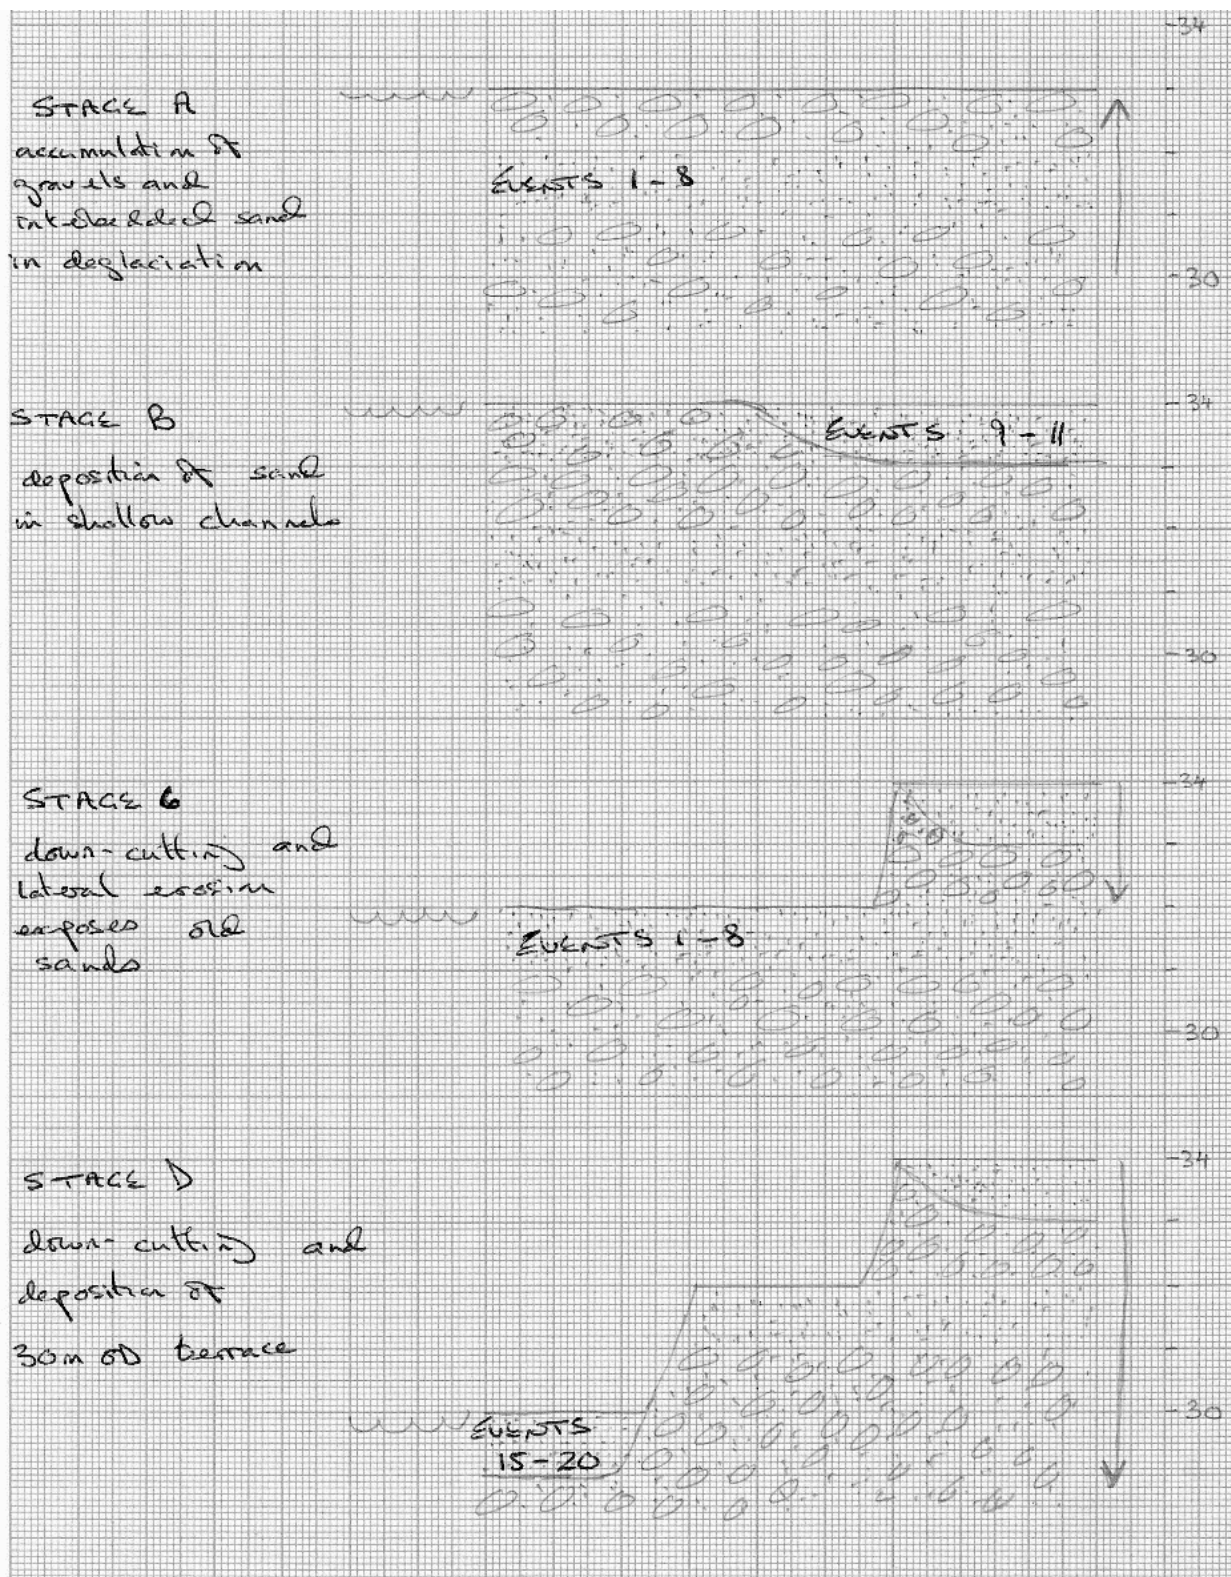 -34
STAGE A
accumulation of
gravels and
interbedded sand
in deglaciation
EVENTS 1-8
-30
STAGE B
deposition of sand
in shallow channels
-34
EVENTS 9-11
-30
STAGE C
down-cutting and
lateral erosion
exposes old
sands
-34
EVENTS 1-8
-30
STAGE D
down-cutting and
deposition of
30m OD terrace
-34
-30
EVENTS
15-20